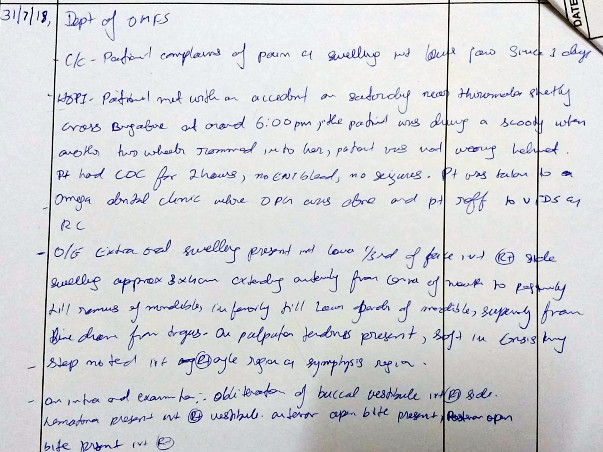 31/7/18, Dept of OMFS DATE
- C/C - Patient complains of pain & swelling irt lower jaw since 3 days
- HOPI - Patient met with an accident on saturday near
cross at around 6:00 pm, the patient was driving a scooty when
another two wheeler rammed into her, patient was not wearing helmet.
Pt had LOC for 2 hours, no ENT bleed, no seizures. Pt was taken to a
Omega dental clinic where OPG was done and pt reff to VIDS &
RC
- O/E Extra oral swelling present irt lower 1/3rd of face irt (Rt) side
swelling approx 3x4cm extending from corner of mouth to
till ramus of mandible, inferiorly till lower border of mandible, superiorly from
line drawn from tragus. On palpation tenderness present, soft in consistency
- step noted irt (Rt) angle region & symphysis region.
- on intra oral examination, obliteration of buccal vestibule irt (Rt) side.
hematoma present irt (Rt) vestibule. anterior open bite present, open
bite present irt (Rt)